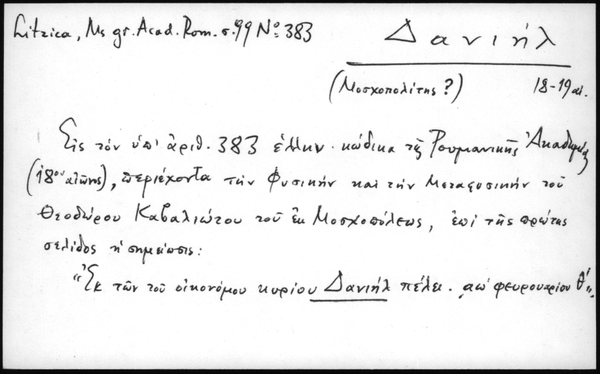 Litzica, Ms gr. Acad. Rom. σ. 99 Nº 383
Δανιήλ
(Μοσχοπολίτης?) 18-19 αι.
Εἰς τόν ὑπ' ἀριθ. 383 ἑλλην. κώδικα τῆς Ρουμανικῆς Ἀκαδημίας
(18ου αἰῶνος), περιέχοντα τήν Φυσικήν καί τήν Μεταφυσικήν τοῦ
Θεοδώρου Καβαλιώτου τοῦ ἐκ Μοσχοπόλεως, ἐπί τῆς πρώτης
σελίδος ἡ σημείωσις:
"Ἐκ τῶν τοῦ οἰκονόμου κυρίου Δανιήλ πέλει. ͵αω' φευρουαρίου θ'".